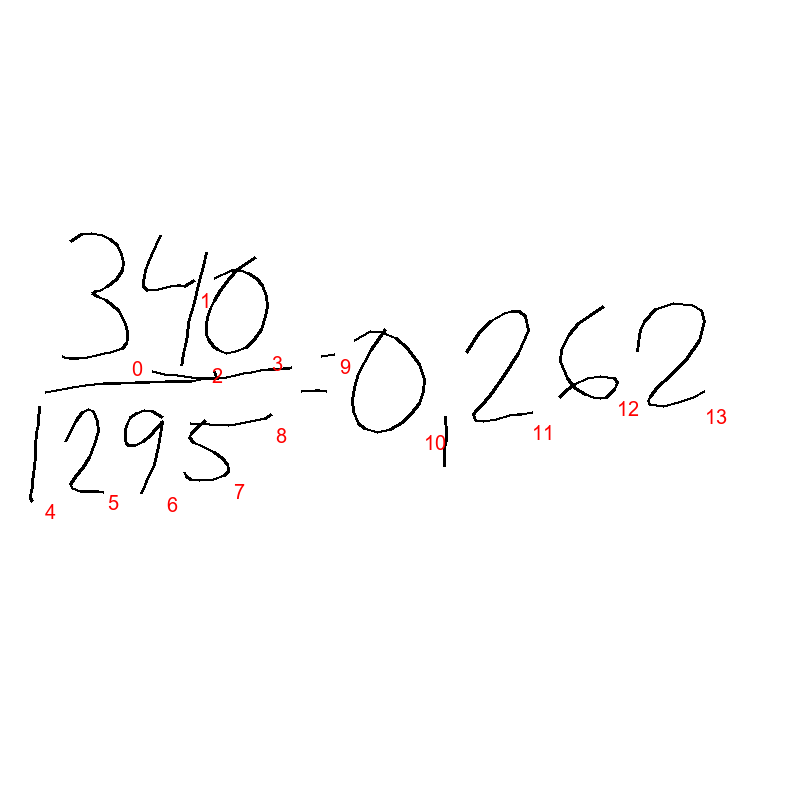 340
1295
=0,262
0 1 2 3 4 5 6 7 8 9 10 11 12 13